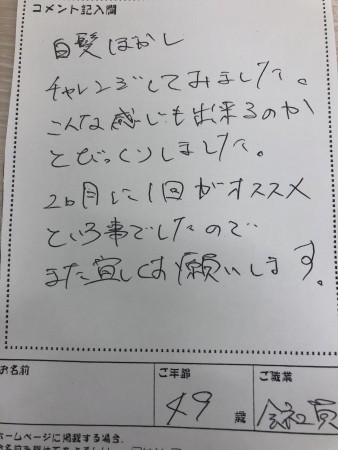 コメント記入欄
白髪ぼかし
チャレンジしてみました。
こんな感じも出来るのか
とびっくりしました。
2ヵ月に1回がオススメ
という事でしたので
また宜しくお願いします。
お名前
ご年齢
ご職業
49 歳
会社員
ホームページに掲載する場合、